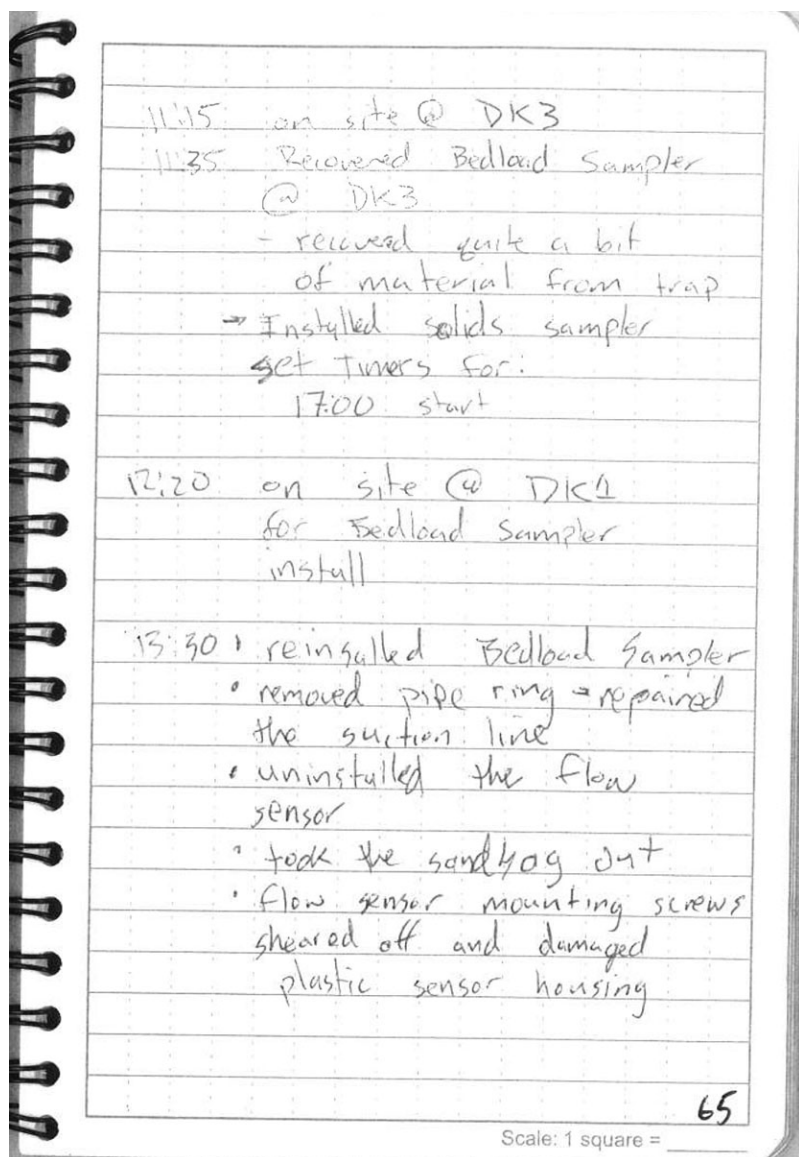 11:15 on site @ DK3
11:35 Recovered Bedload Sampler
@ DK3
- recovered quite a bit
of material from trap
→ Installed solids sampler
set Timers for:
17:00 start
12:20 on site @ DK1
for Bedload Sampler
install
13:30 • reinsalled Bedload Sampler
• removed pipe ring → repaired
the suction line
• uninstalled the flow
sensor
• took the sandbag out
• flow sensor mounting screws
sheared off and damaged
plastic sensor housing
65
Scale: 1 square = ____